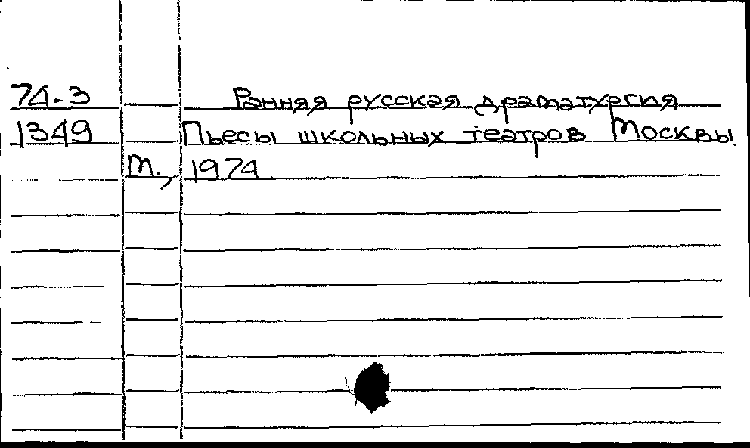 74-3 Ранняя русская драматургия
1349 Пьесы школьных театров Москвы.
М., 1974.